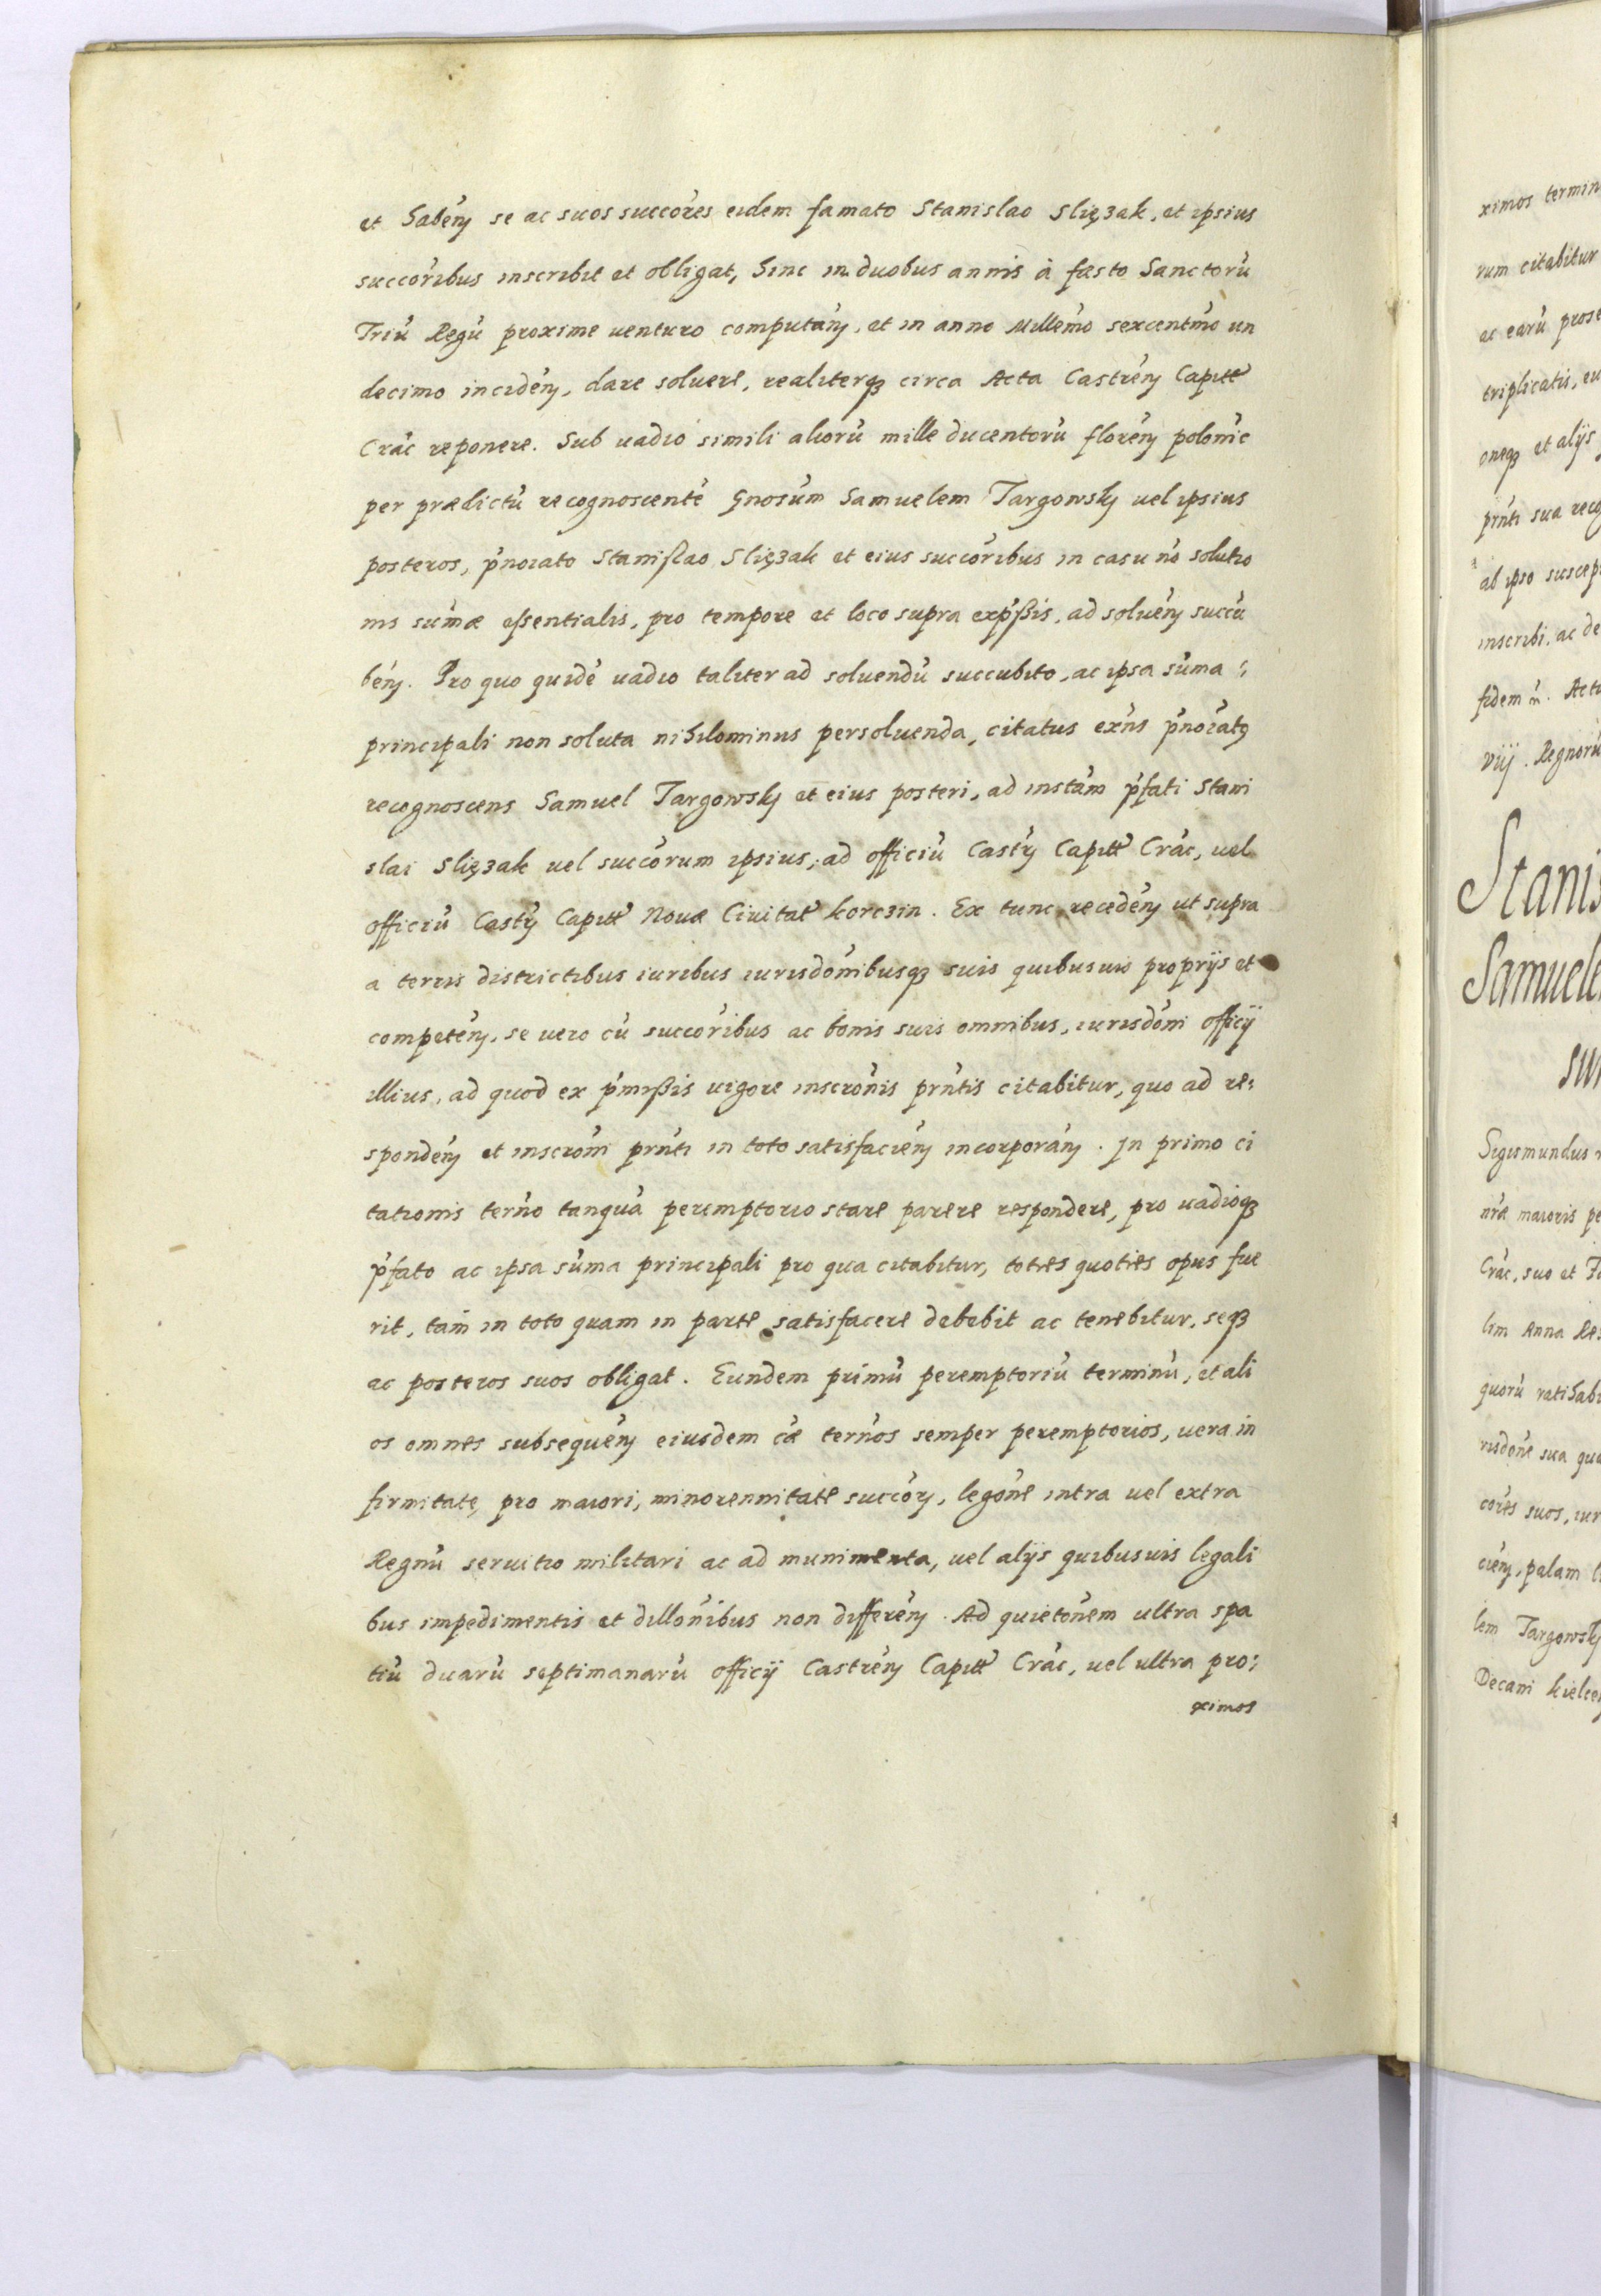 et habeñ se ac suos succores eidem famato Stanislao Slięzak, et ipsius
succoribus inscribit et obligat, hinc in duobus annis à festo Sanctorũ
Triũ Regũ proxime venturo computañ, et in anno Millemo sexcentmo un
decimo incideñ, dare soluere, realiterqꝫ circa Acta Castreñ Capitt
Crac̃ reponere. Sub uadio simili aliorũ mille ducentorũ floreñ polonic
per prædictũ recognoscentẽ Gnosum Samuelem Targowsky uel ipsius
posteros, p̃noiato Stanislao Slięzak et eius succoribus in casu nõ solutio
nis sum̃æ essentialis, pro tempore et loco supra exp̃ssis, ad solueñ succũ
beñ. Pro quo quidẽ uadio taliter ad soluendũ succubito, ac ipsa sum̃a
principali non soluta nihilominus persoluenda, citatus exñs p̃noiatꝰ
recognoscens Samuel Targowsky et eius posteri, ad instam̃ p̃fati Stani
slai Slięzak uel succorum ipsius, ad officiũ Castr̃ Capitt Crac̃, uel
officiũ Castr̃ Capitt Nouæ Ciuitat̃ korczin. Ex tunc recedeñ ut supra
a terris districtibus iuribus iurisdonibusqꝫ suis quibusuis proprijs et
competeñ, se uero cũ succoribus ac bonis suis omnibus, iurisdoni officij
illius, ad quod ex p̃missis uigore inscronis prñtis citabitur, quo ad re:
spondeñ et inscroni prñti in toto satisfacieñ incorporañ. Jn primo ci
tationis termo tanquã peremptorio stare parere respondere, pro uadioqꝫ
p̃fato ac ipsa sum̃a principali pro qua citabitur, toties quoties opus fue
rit, tam in toto quam in parte satisfacere debebit ac tenebitur, seqꝫ
ac posteros suos obligat. Eundem primũ peremptoriũ terminũ, et ali
os omnes subsequeñ eiusdem cæ termos semper peremptorios, uera in
firmitate, pro maiori, minorennitate succor̃, legone intra uel extra
Regnũ seruitio militari ac ad munimenta, uel alijs quibusuis legali
bus impedimentis et dillonibus non differeñ. Ad quietonem ultra spa
tiũ duarũ septimanarũ officij Castreñ Capitt Crac̃, uel ultra pro:
ximos
ximos
rum citabitur
ac earũ
triplicatis,
oneqꝫ et alijs
prñti sua
ab ipso
inscribi, ac
fidem
viij. Regnorũ
Sigismundus
nræ maioris
Crac̃, suo et
lim Anna
quorũ
risdone sua
cores suos,
palam
lem Targowsky
Decani